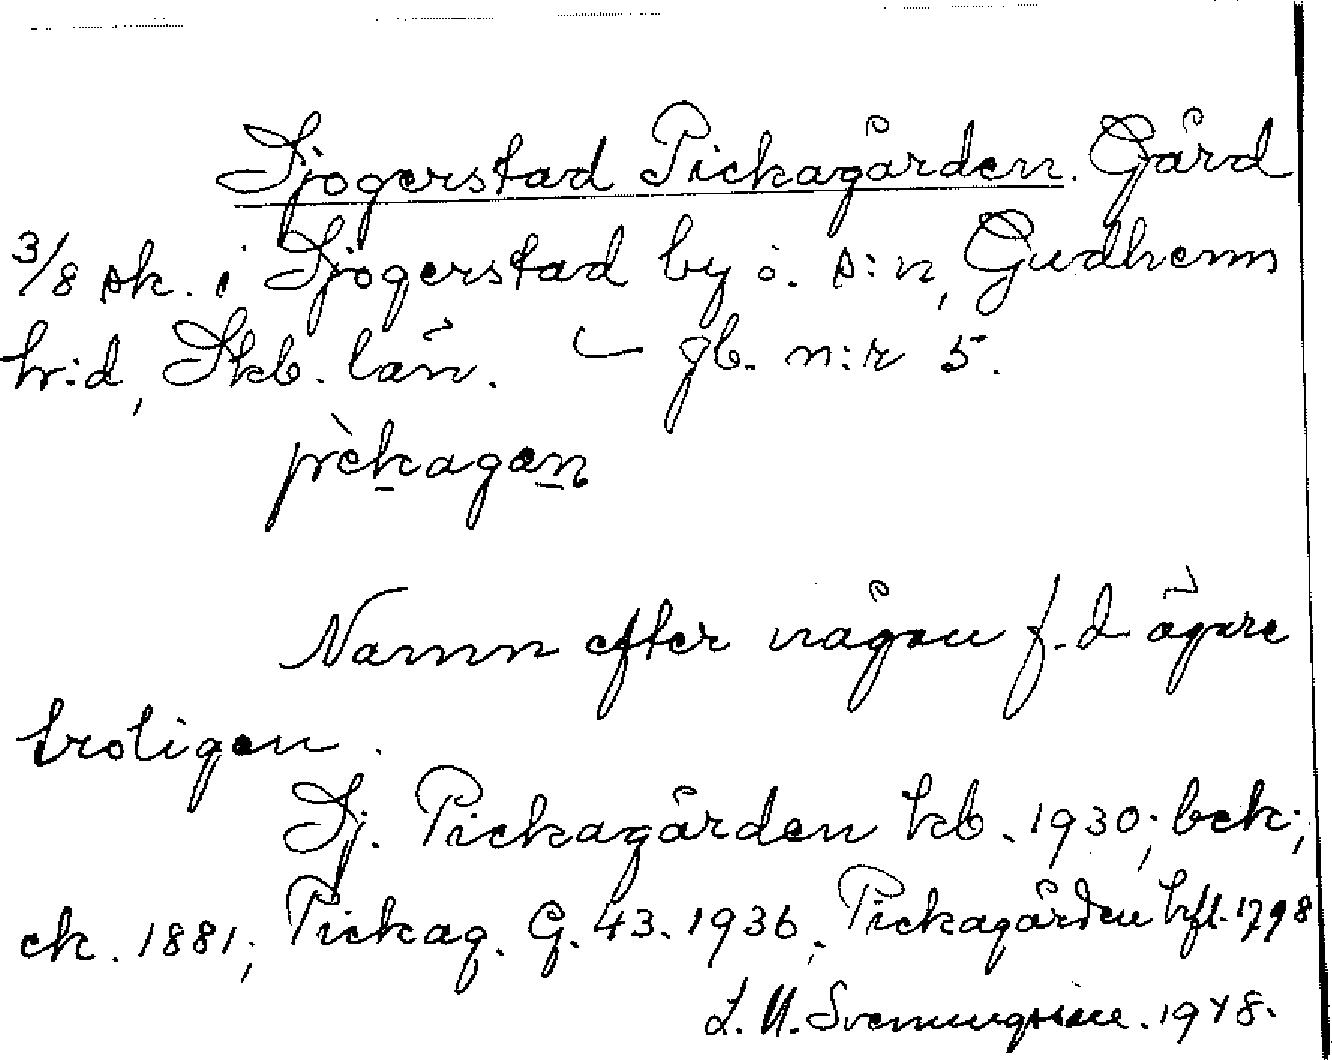 Sjogerstad Pickagården. Gård
3/8 sk. i Sjogerstad by o. s:n, Gudhems
hr:d, Skb. län. gb. n:r 5.
pèkagan
Namn efter någon f.d ägare
troligen.
Sj. Pickagården kb. 1930; bek;
ek. 1881; Pickag. G. 43. 1936; Pickagården hfl. 1798
1948.